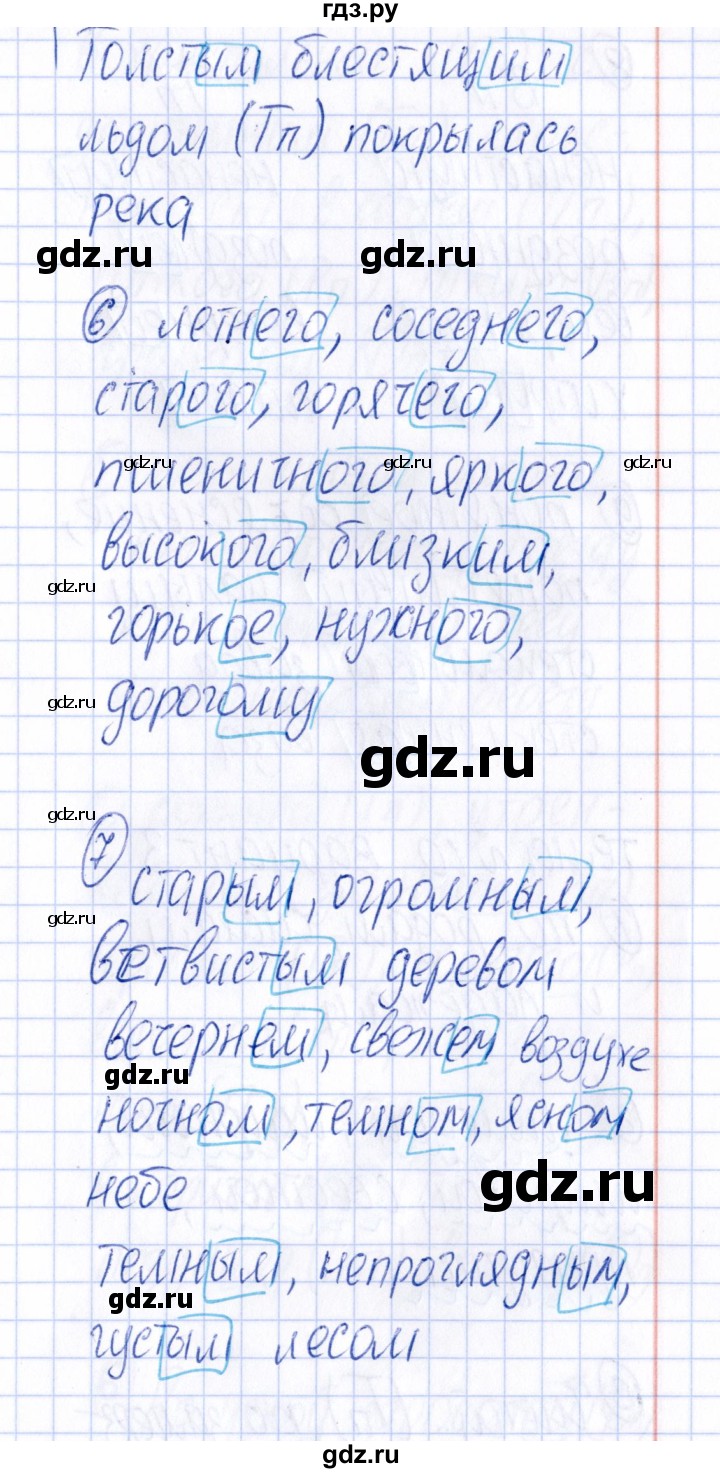 гдз.ру
Толстым блестящим
льдом (Тп) покрылась
река
gdz.ru gdz.ru
6 летнего, соседнего,
старого, горячего,
gdz.ru gdz.ru gdz.ru
пшеничного, яркого,
высокого, близким,
gdz.ru
горькое, нужного,
gdz.ru дорогому
gdz.ru
gdz.ru
7
старым, огромным,
gdz.ru
ветвистым деревом
вечернем, свежем воздухе
gdz.ru
ночном, темном, ясном
gdz.ru
небе
темным, непроглядным,
gdz.ru
густым лесом
gdz.ru